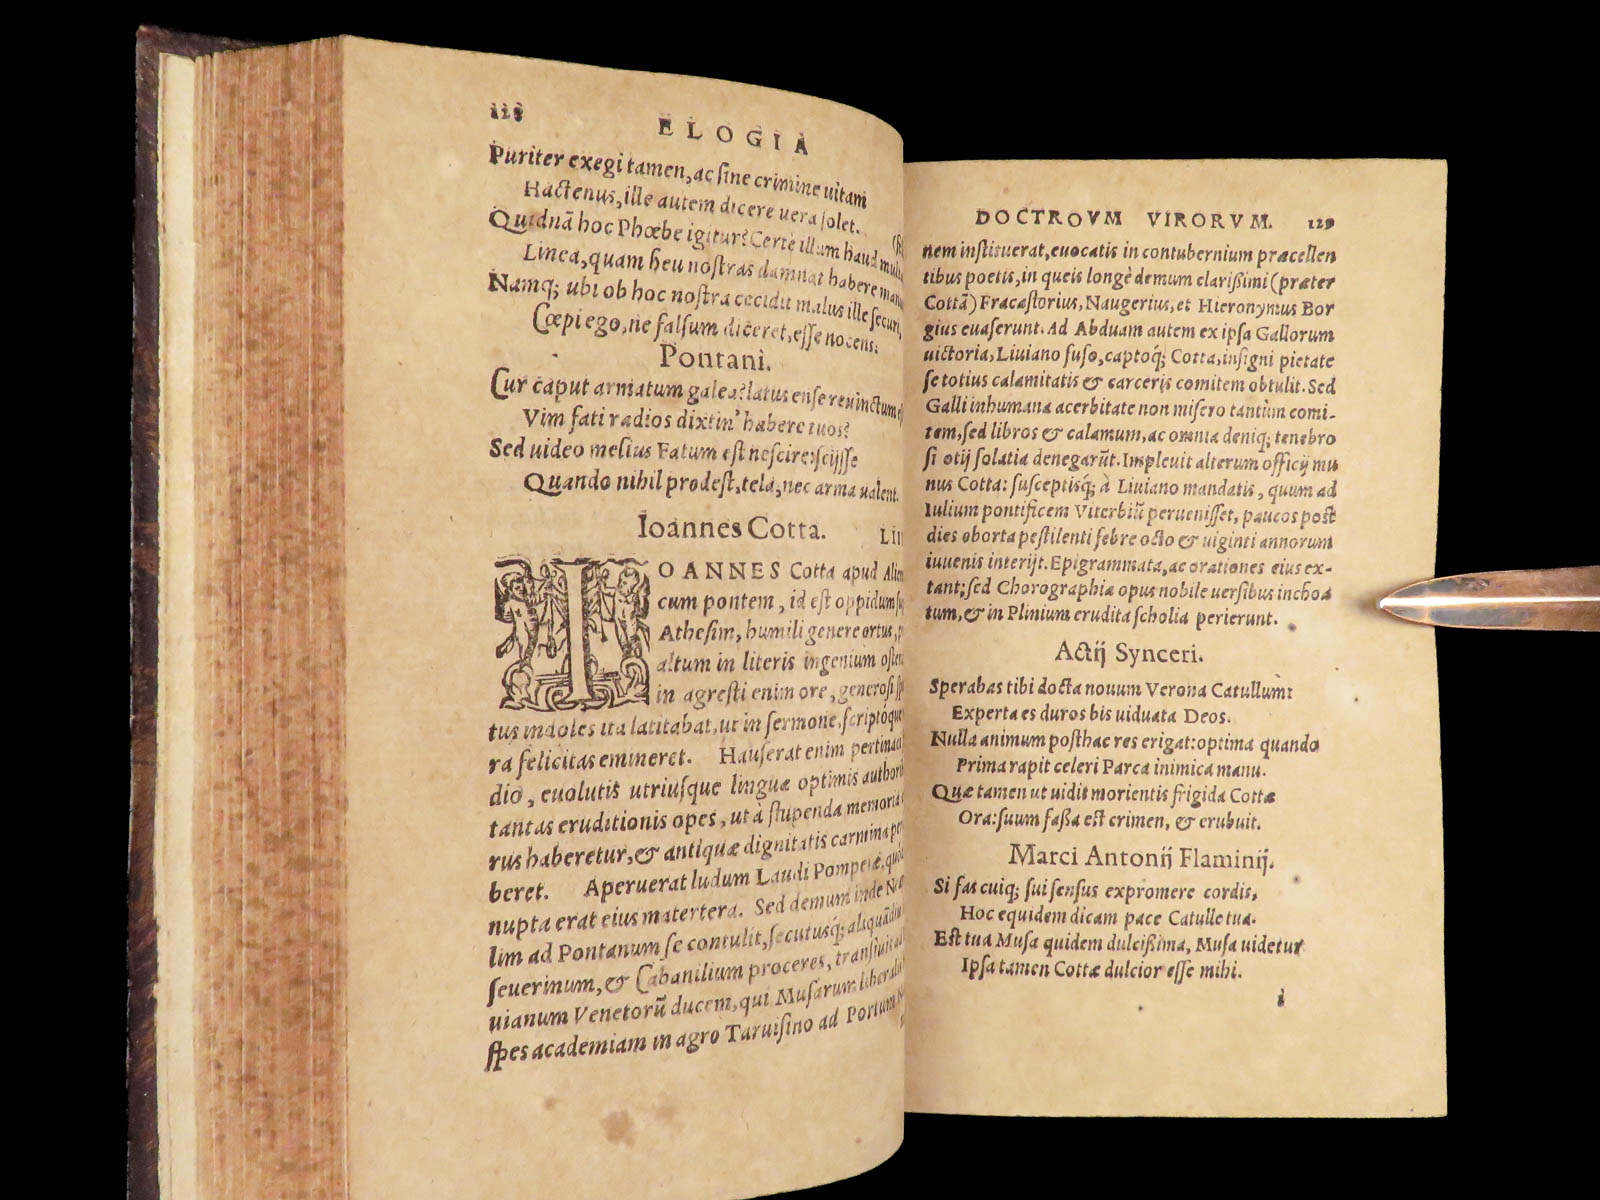 128
ELOGIA
Puriter exegi tamen, ac ſine crimine uitam
Hactenus, ille autem dicere uera ſolet.
Quidnã hoc Phœbe igitur? Certè illum haud
Linea, quam heu noſtras damnat habere
Namq; ubi ob hoc noſtra cecidit malus ille
Cœpi ego, ne falſum diceret, eſſe nocens.
Pontani.
Cur caput armatum galea? latus enſe reuinctum
Vim fati radios dixtin' habere tuos?
Sed uideo melius Fatum eſt neſcire: ſcijſſe
Quando nihil prodeſt, tela, nec arma ualent.
Ioannes Cotta. LII
IOANNES Cotta apud
cum pontem, id eſt oppidum
Atheſim, humili genere ortus,
altum in literis ingenium
in agreſti enim ore, generoſi
tus indoles ita latitabat, ut in ſermone, ſcriptóque
ra felicitas emineret. Hauſerat enim
dio, euolutis utriuſque linguæ optimis
tantas eruditionis opes, ut à ſtupenda
rus haberetur, & antiquæ dignitatis carmina
beret. Aperuerat ludum Laudi Pompeiæ,
nupta erat eius matertera. Sed demum inde
lim ad Pontanum ſe contulit, ſecutusq́;
ſeuerinum, & Cabanilium proceres,
uianum Venetorũ ducem, qui Muſarum
ſpes academiam in agro Taruiſino ad Portum
DOCTROVM VIRORVM. 129
nem inſtituerat, euocatis in contubernium præcellen
tibus poetis, in queis longè demum clarißimi (præter
Cottã) Fracaſtorius, Naugerius, et Hieronymus Bor
gius euaſerunt. Ad Abduam autem ex ipſa Gallorum
uictoria, Liuiano fuſo, captoq́; Cotta, inſigni pietate
ſe totius calamitatis & carceris comitem obtulit. Sed
Galli inhumana acerbitate non miſero tantùm comi-
tem, ſed libros & calamum, ac omnia deniq; tenebro
ſi otij ſolatia denegarũt. Impleuit alterum officij mu
nus Cotta: ſuſceptisq́; à Liuiano mandatis, quum ad
Iulium pontificem Viterbiũ perueniſſet, paucos poſt
dies oborta peſtilenti febre octo & uiginti annorum
iuuenis interijt. Epigrammata, ac orationes eius ex-
tant; ſed Chorographiæ opus nobile uerſibus inchoa
tum, & in Plinium erudita ſcholia perierunt.
Actij Synceri.
Sperabas tibi docta nouum Verona Catullum:
Experta es duros bis uiduata Deos.
Nulla animum poſthac res erigat: optima quando
Prima rapit celeri Parca inimica manu.
Quæ tamen ut uidit morientis frigida Cottæ
Ora: ſuum faßa eſt crimen, & erubuit.
Marci Antonij Flaminij.
Si fas cuiq; ſui ſenſus expromere cordis,
Hoc equidem dicam pace Catulle tua.
Eſt tua Muſa quidem dulcißima, Muſa uidetur
Ipſa tamen Cottæ dulcior eſſe mihi.
i